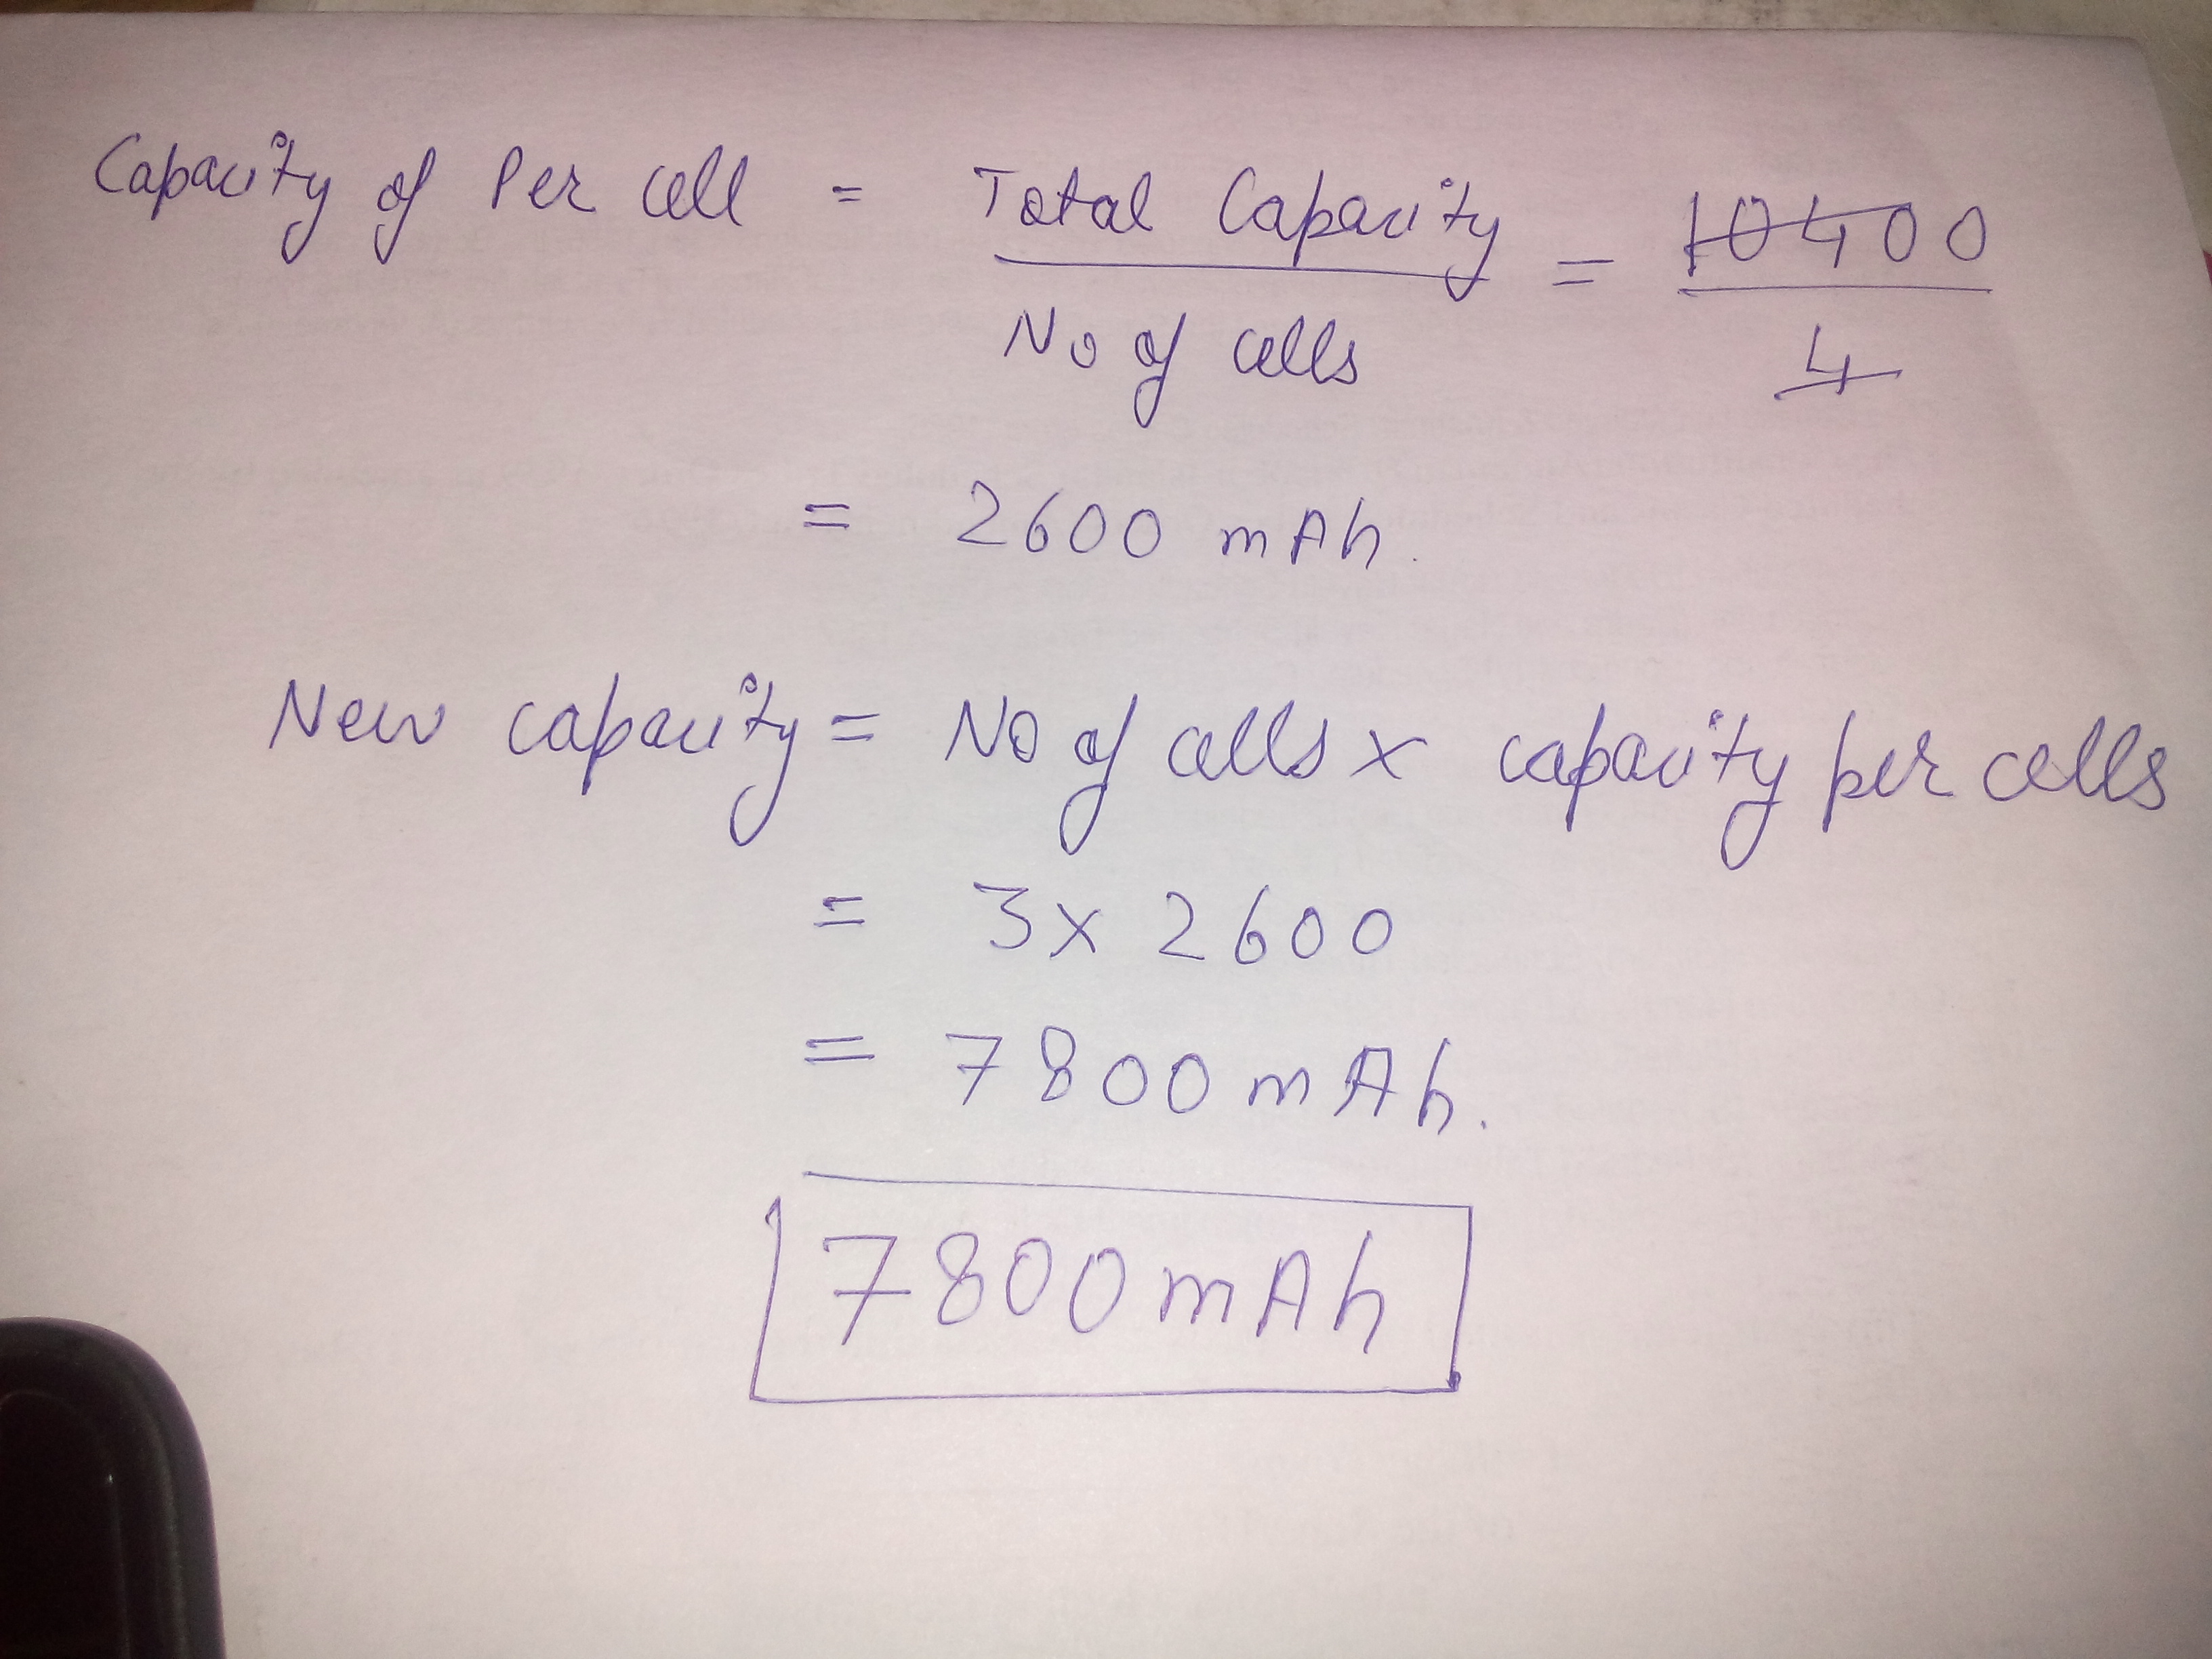 Capacity of Per cell = Total Capacity / No of cells = 10400 / 4
= 2600 mAh.
New capacity = No of cells x capacity per cells
= 3 x 2600
= 7800 mAh.
7800 mAh